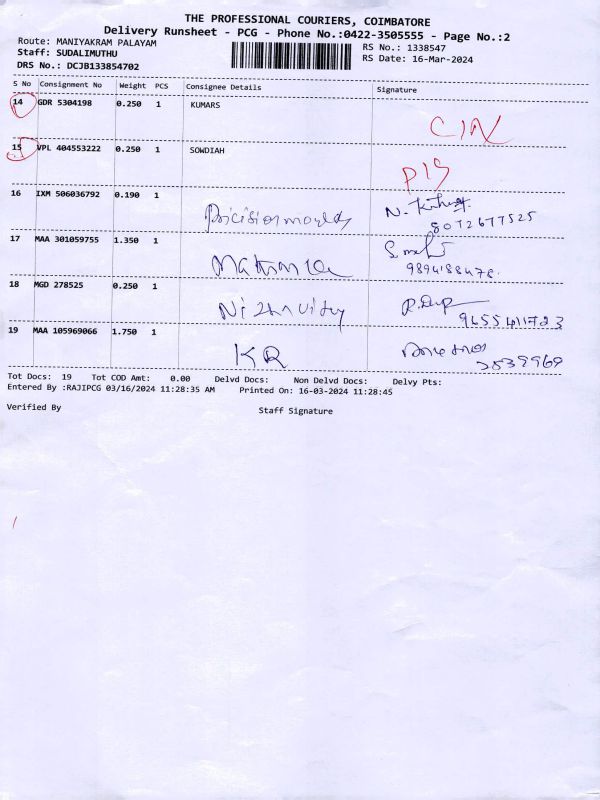 THE PROFESSIONAL COURIERS, COIMBATORE
Delivery Runsheet - PCG - Phone No.:0422-3505555 - Page No.:2
Route: MANIYAKRAM PALAYAM
RS No.: 1338547
Staff: SUDALIMUTHU
RS Date: 16-Mar-2024
DRS No.: DCJB133854702
S No Consignment No Weight PCS Consignee Details Signature
14 GDR 5304198 0.250 1 KUMARS
CIN
15 VPL 404553222 0.250 1 SOWDIAH
P19
16 IXM 506036792 0.190 1
N.
8072677525
17 MAA 301059755 1.350 1
9894188478
18 MGD 278525 0.250 1
9655411723
19 MAA 105969066 1.750 1
KR
2539969
Tot Docs: 19 Tot COD Amt: 0.00 Delvd Docs: Non Delvd Docs: Delvy Pts:
Entered By :RAJIPCG 03/16/2024 11:28:35 AM Printed On: 16-03-2024 11:28:45
Verified By Staff Signature